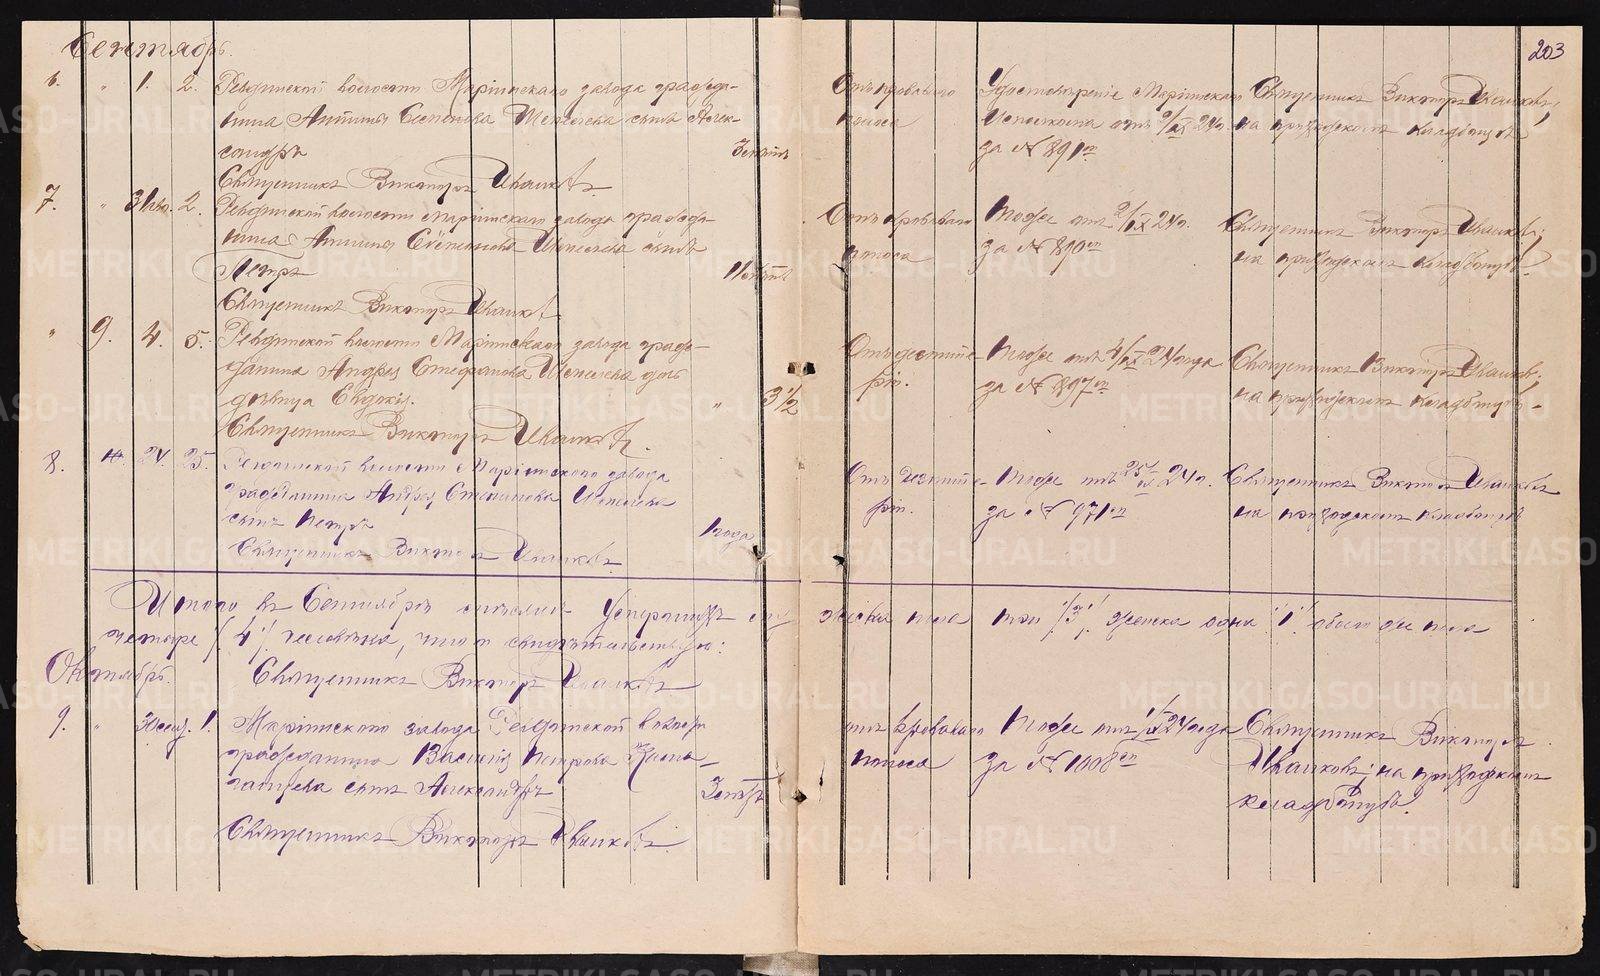 Сентябрь.
203
6. " 1. 2. Ревдинской волости Маріинскаго завода гражда-
нина Антипы Степанова Шепелева сынъ Алек-
сандръ
Священникъ Викторъ Ивановъ.
Отъ кроваваго
поноса
Удостовѣреніе Маріинскаго
Исполкома отъ 2/IX 24 г.
за № 891
Священникъ Викторъ Ивановъ;
на приходскомъ кладбищѣ
7. " 31 2. Ревдинской волости Маріинскаго завода гражда-
нина Антипы Степанова Шепелева сынъ
Петръ
Священникъ Викторъ Ивановъ.
Отъ кроваваго
поноса
Тоже отъ 2/IX 24 г.
за № 890
Священникъ Викторъ Ивановъ;
на приходскомъ кладбищѣ.
" 9. 4. 5. Ревдинской волости Маріинскаго завода граж-
данина Андрея Степанова Шепелева
дѣвица Евдокія.
" 3 1/2
Священникъ Викторъ Ивановъ.
Отъ дезинте-
ріи.
Тоже отъ 4/IX 24 года
за № 897
Священникъ Викторъ Ивановъ;
на приходскомъ кладбищѣ.
8. 24. 25. Ревдинской волости Маріинскаго завода
гражданина Андрея Степанова Шепелева
сынъ Петръ
1 года
Священникъ Викторъ Ивановъ.
Отъ дезинте-
ріи.
Тоже отъ 25/IX 24 г.
за № 971
Священникъ Викторъ Ивановъ
на приходскомъ кладбищѣ
Итого въ Сентябрѣ мѣсяцѣ Умершихъ мужска пола три /3/. женска одна /1/. обоего же пола
четыре /4/. человѣка, что и свидѣтельствую:
Священникъ Викторъ Ивановъ
Октябрь.
9. " 1. Маріинскаго завода Ревдинской волости
гражданина Василія Петрова
сынъ Александръ
Священникъ Викторъ Ивановъ.
отъ кроваваго
поноса
Тоже отъ 24 года
за № 1008
Священникъ Викторъ
Ивановъ; на приходскомъ
кладбищѣ.
METRIKI.GASO-URAL.RU